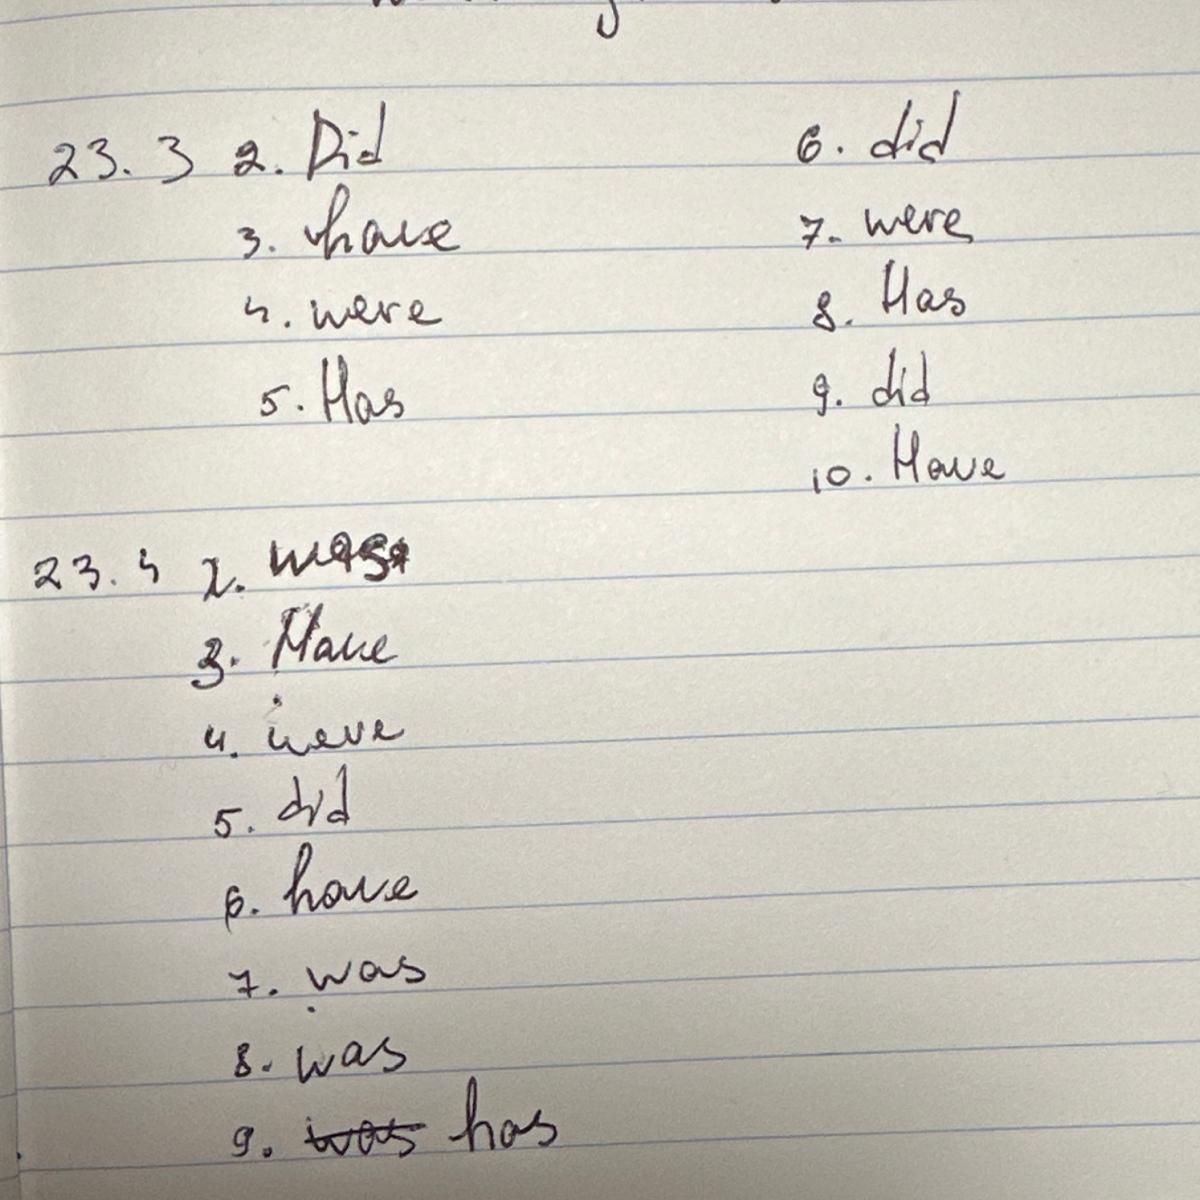 23.3 2. Did
3. have
4. were
5. Has
6. did
7. were
8. Has
9. did
10. Have
23.4 2. was
3. Have
4. were
5. did
6. have
7. was
8. was
9. was has